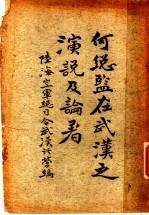 何总監在武漢之
演說及論著
陸海空軍總司令武漢行營編